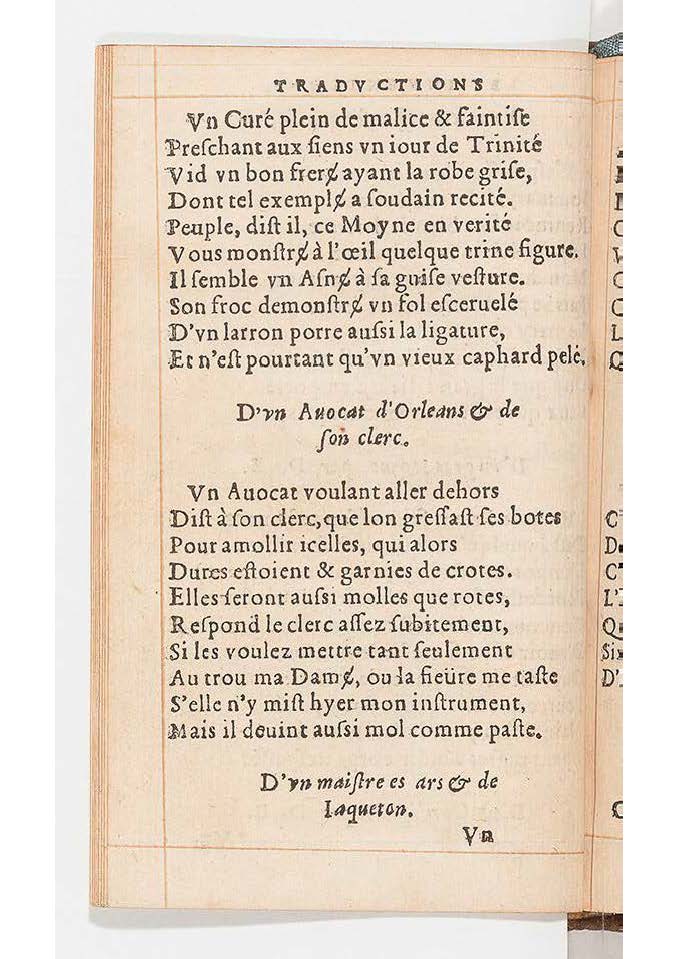 TRADVCTIONS
Vn Curé plein de malice & faintiſe
Preſchant aux ſiens vn iour de Trinité
Vid vn bon frerɇ ayant la robe griſe,
Dont tel exemplɇ a ſoudain recité.
Peuple, diſt il, ce Moyne en verité
Vous monſtrɇ à l'œil quelque trine figure.
Il ſemble vn Aſnɇ à ſa guiſe veſture.
Son froc demonſtrɇ vn fol eſceruelé
D'vn larron porre auſsi la ligature,
Et n'eſt pourtant qu'vn vieux caphard pelé.
D'vn Auocat d'Orleans & de
ſon clerc.
Vn Auocat voulant aller dehors
Diſt à ſon clerc, que lon greſſaſt ſes botes
Pour amollir icelles, qui alors
Dures eſtoient & garnies de crotes.
Elles ſeront auſsi molles que rotes,
Reſpond le clerc aſſez ſubitement,
Si les voulez mettre tant ſeulement
Au trou ma Damɇ, ou la fieüre me taſte
S'elle n'y miſt hyer mon inſtrument,
Mais il deuint auſsi mol comme paſte.
D'vn maiſtre es ars & de
Iaqueton.
Vn
C
D
C
L'
Q
Six
D'